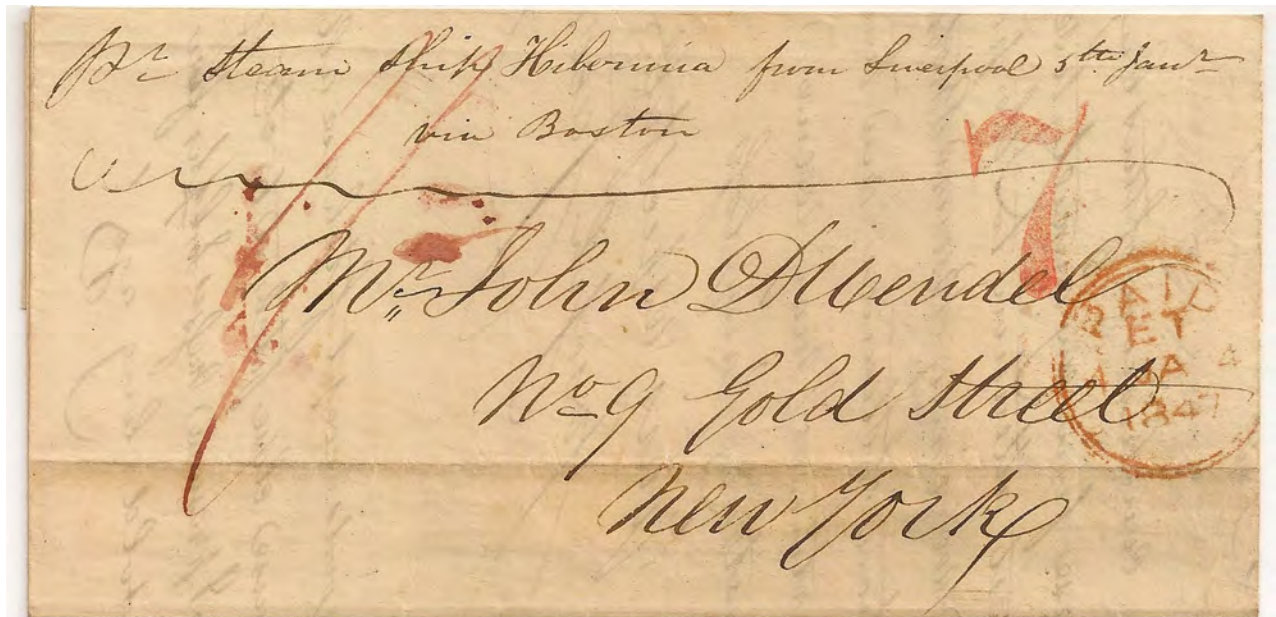 Pr Steam Ship Hibernia from Liverpool 5th Janr
via Boston
7
Mr John D Wendel
No 9 Gold Street
New York
PAID
ET
JA 4
1847